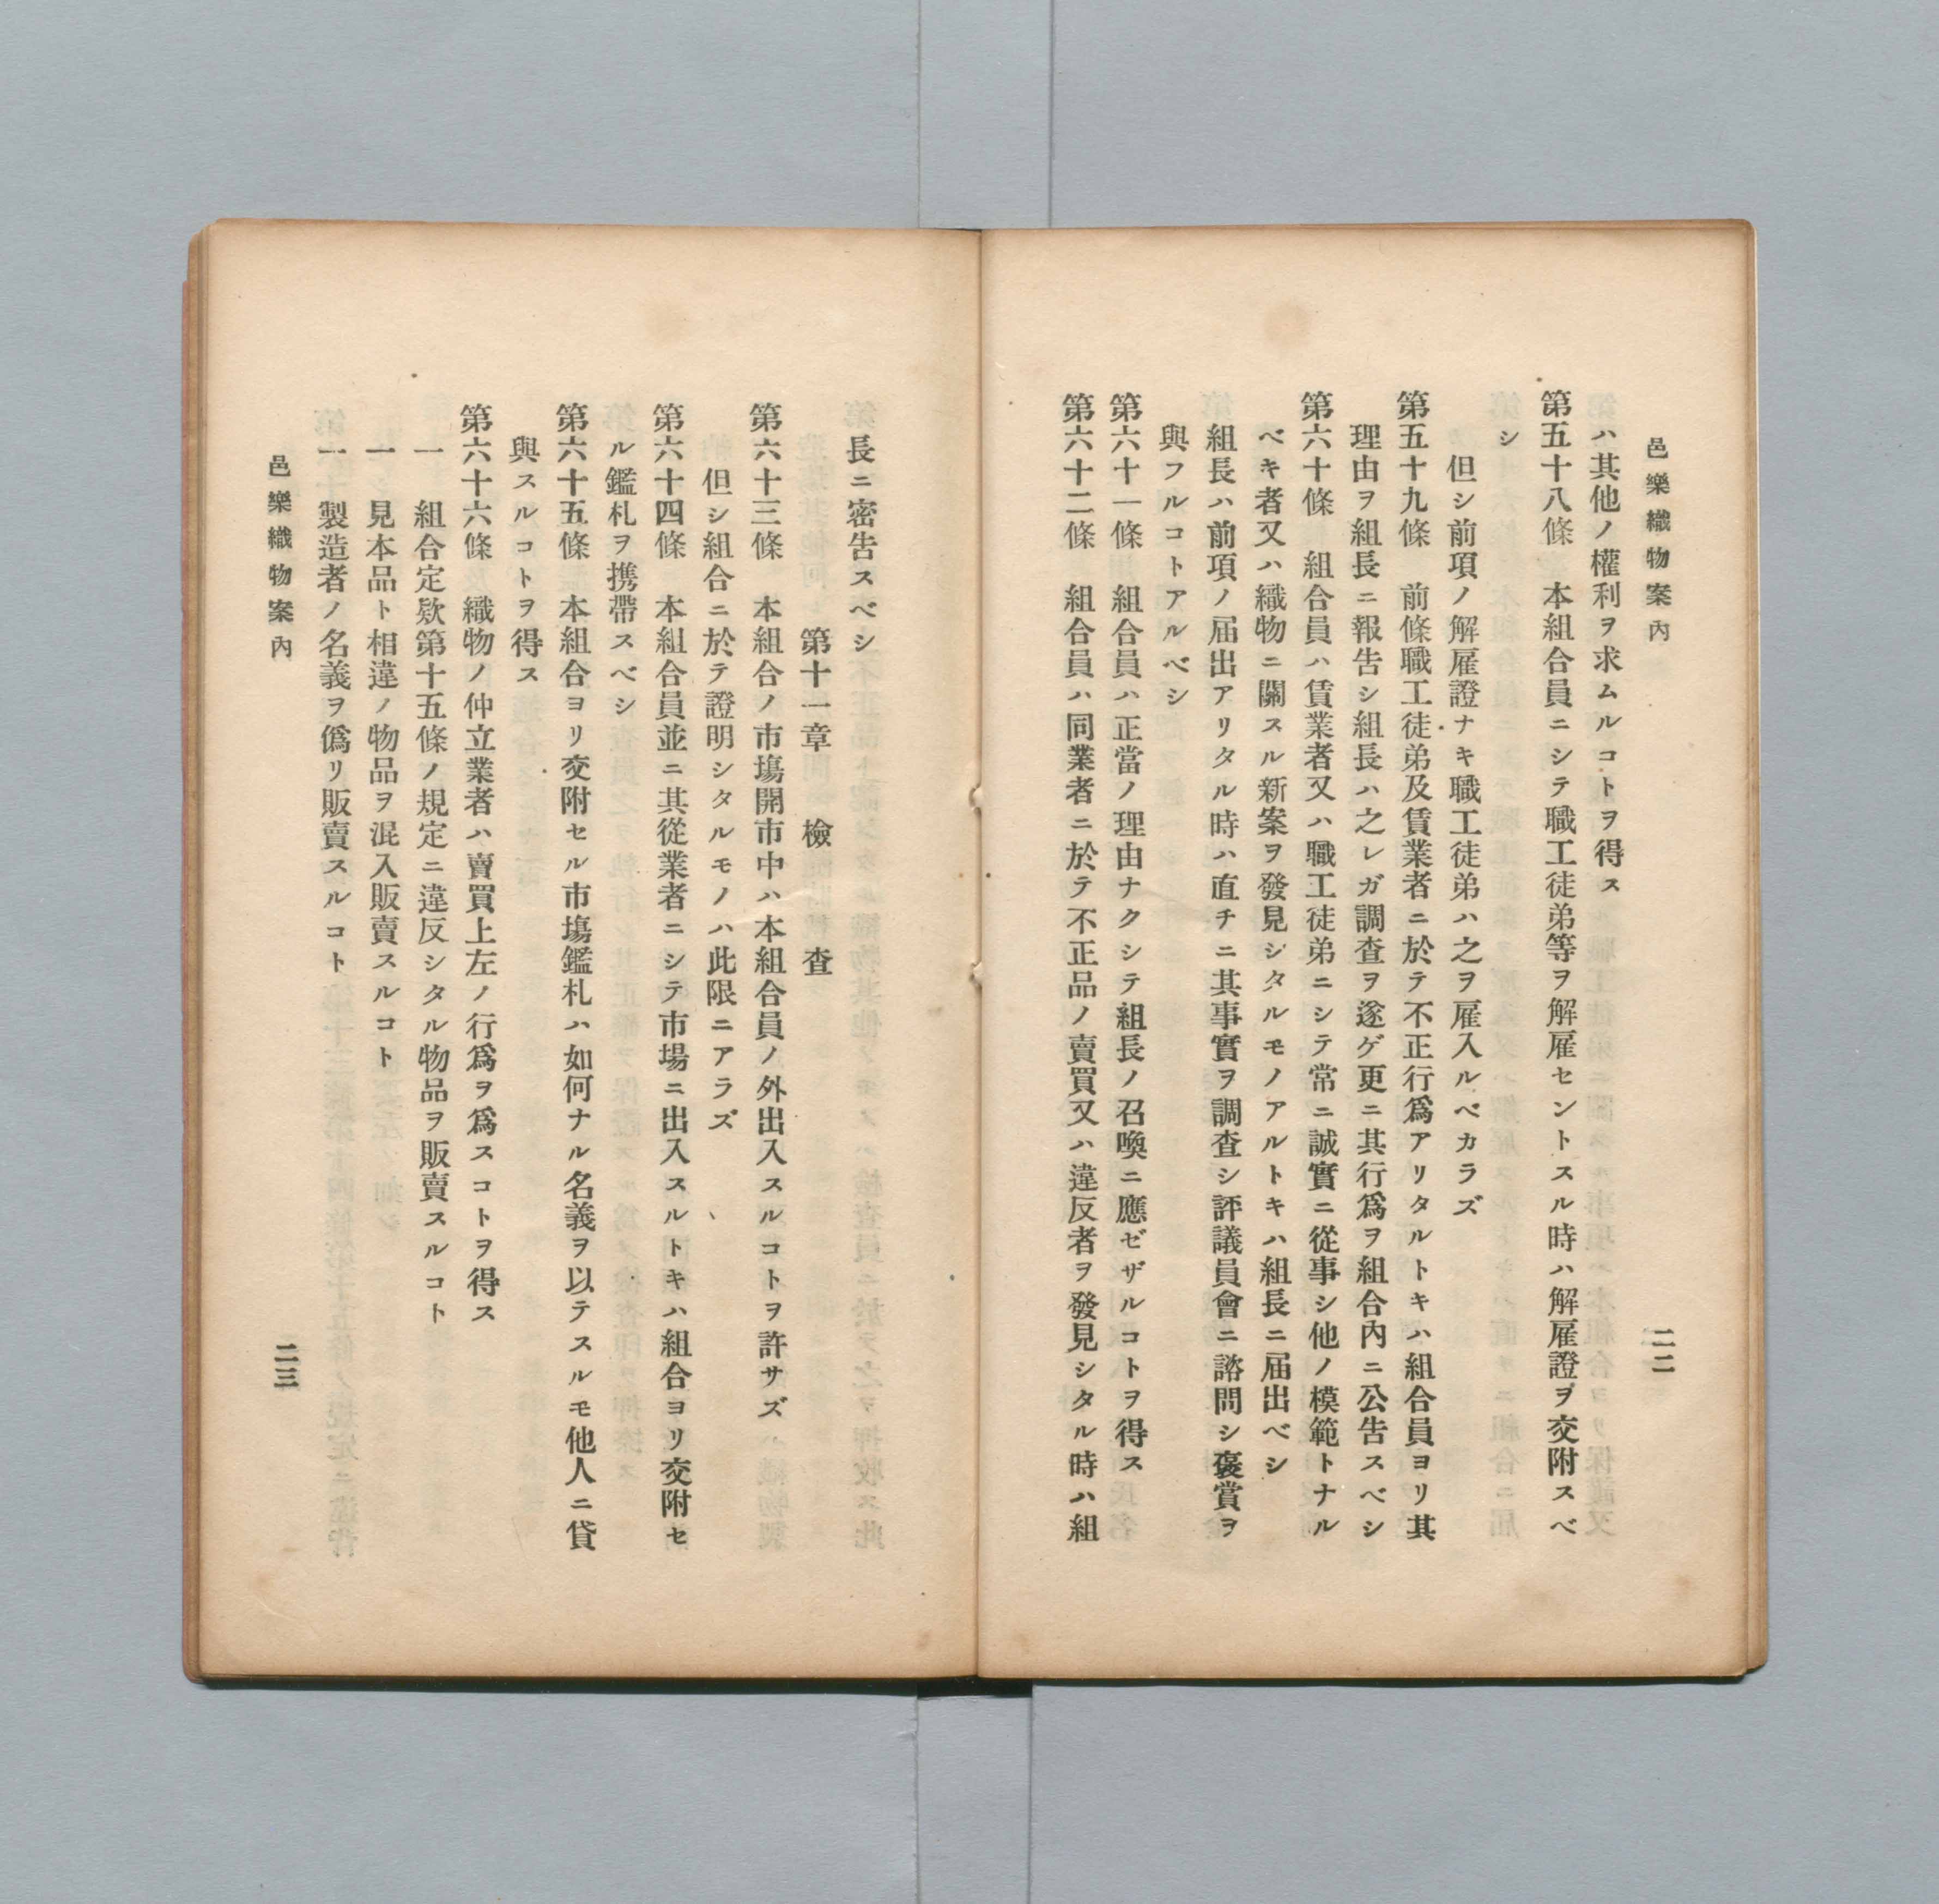 邑樂織物案內
二二
ハ其他ノ權利ヲ求ムルコトヲ得ス
第五十八條　本組合員ニシテ職工徒弟等ヲ解雇セントスル時ハ解雇證ヲ交附スベ
シ
但シ前項ノ解雇證ナキ職工徒弟ハ之ヲ雇入ルベカラズ
第五十九條　前條職工徒弟及賃業者ニ於テ不正行爲アリタルトキハ組合員ヨリ其
理由ヲ組長ニ報告シ組長ハ之レガ調査ヲ遂ゲ更ニ其行爲ヲ組合內ニ公告スベシ
第六十條　組合員ハ賃業者又ハ職工徒弟ニシテ常ニ誠實ニ從事シ他ノ模範トナル
ベキ者又ハ織物ニ關スル新案ヲ發見シタルモノアルトキハ組長ニ届出ベシ
組長ハ前項ノ届出アリタル時ハ直チニ其事實ヲ調査シ評議員會ニ諮問シ褒賞ヲ
與フルコトアルベシ
第六十一條　組合員ハ正當ノ理由ナクシテ組長ノ召喚ニ應ゼザルコトヲ得ス
第六十二條　組合員ハ同業者ニ於テ不正品ノ賣買又ハ違反者ヲ發見シタル時ハ組
長ニ密告スベシ
第十一章　檢　査
第六十三條　本組合ノ市塲開市中ハ本組合員ノ外出入スルコトヲ許サズ
但シ組合ニ於テ證明シタルモノハ此限ニアラズ
第六十四條　本組合員並ニ其從業者ニシテ市塲ニ出入スルトキハ組合ヨリ交附セ
ル鑑札ヲ携帶スベシ
第六十五條　本組合ヨリ交附セル市塲鑑札ハ如何ナル名義ヲ以テスルモ他人ニ貸
與スルコトヲ得ス
第六十六條　織物ノ仲立業者ハ賣買上左ノ行爲ヲ爲スコトヲ得ス
一　組合定欵第十五條ノ規定ニ違反シタル物品ヲ販賣スルコト
一　見本品ト相違ノ物品ヲ混入販賣スルコト
一　製造者ノ名義ヲ僞リ販賣スルコト
邑樂織物案內
二三